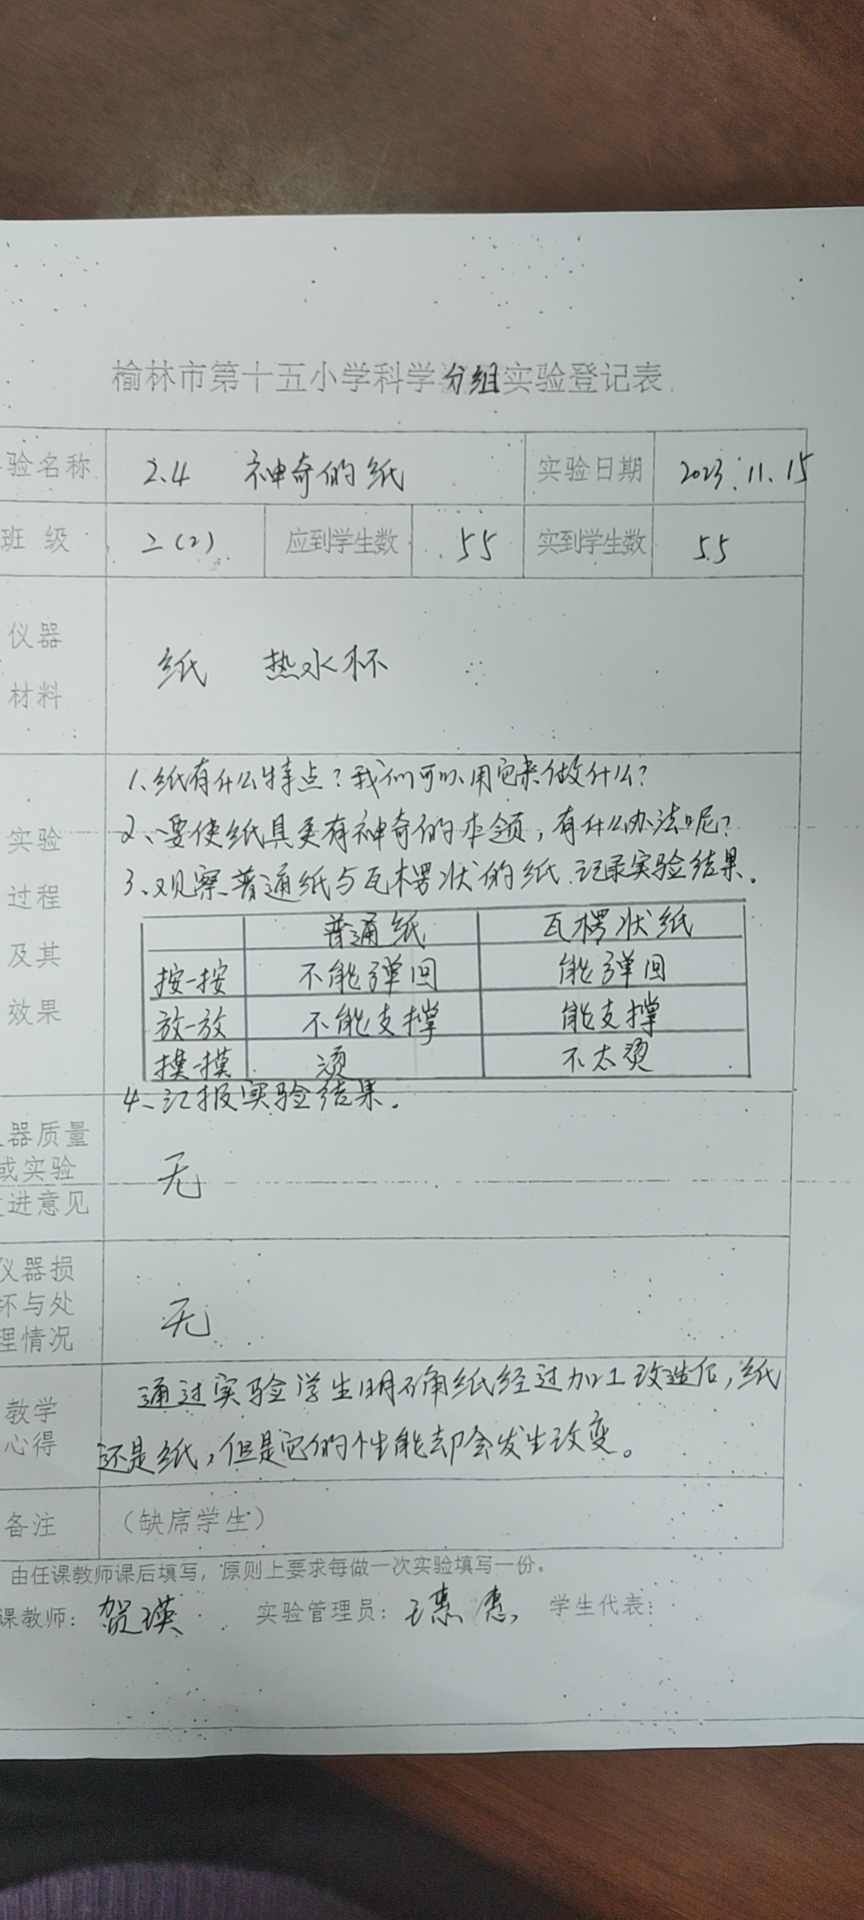 榆林市第十五小学科学分组实验登记表
验名称 2.4 神奇的纸 实验日期 2023.11.15
班 级 二(2) 应到学生数 55 实到学生数 55
仪器
材料
纸 热水杯
实验
过程
及其
效果
1、纸有什么特点?我们可以用它来做什么?
2、要使纸具更有神奇的本领,有什么办法呢?
3、观察普通纸与瓦楞状的纸.记录实验结果。
普通纸 瓦楞状纸
按一按 不能弹回 能弹回
放一放 不能支撑 能支撑
摸一摸 烫 不太烫
4、汇报实验结果。
器质量
或实验
进意见
无
仪器损
坏与处
理情况
无
教学
心得
通过实验学生明确纸经过加工改造后,纸
还是纸,但是它们的性能却会发生改变。
备注 (缺席学生)
由任课教师课后填写,原则上要求每做一次实验填写一份。
课教师: 贺瑛 实验管理员: 学生代表: